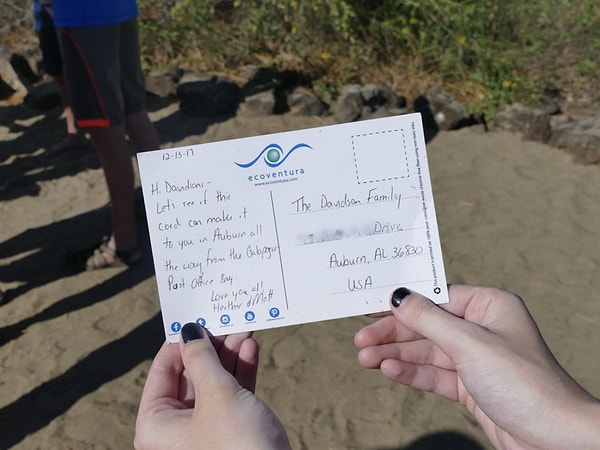 12-13-17
Hi Davidsons-
Let's see if this
card can make it
to you in Auburn all
the way from the Galapagos
Post Office Bay
Love you all!
Heather & Matt
ecoventura
www.ecoventura.com
The Davidson Family
Drive
Auburn, AL 36830
USA